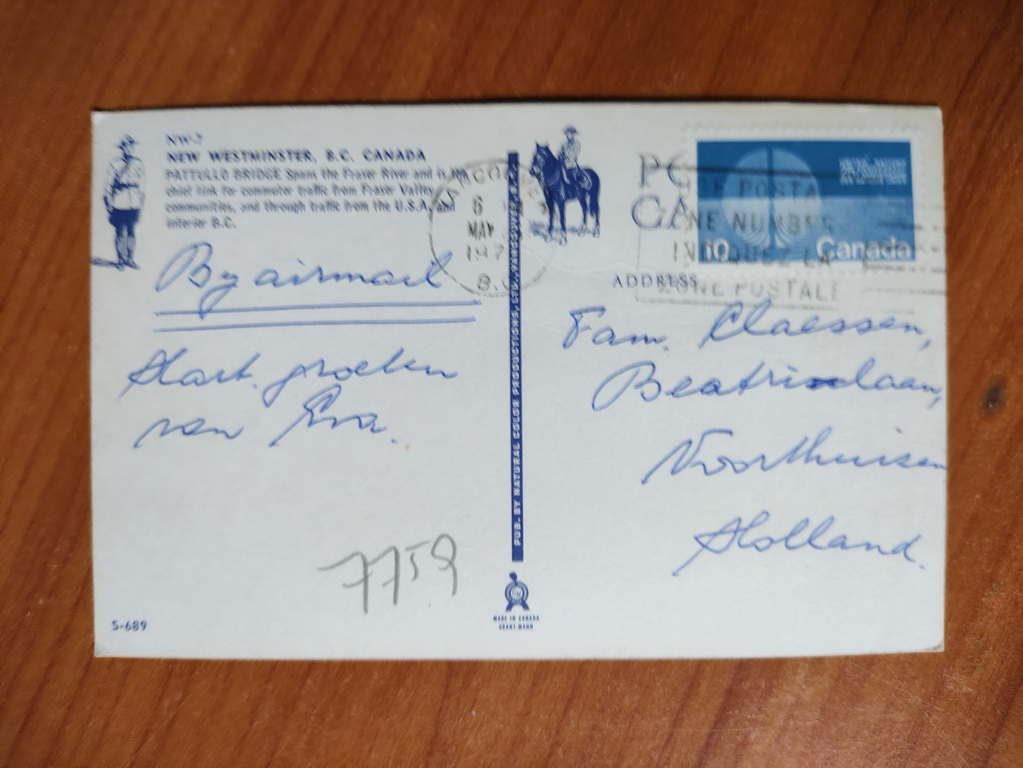 NW-7
NEW WESTMINSTER, B.C. CANADA
PATTULLO BRIDGE Spans the Fraser River and is the
chief link for commuter traffic from Fraser Valley
communities, and through traffic from the U.S.A. and
interior B.C.
By airmail
Hart. groeten
van Eva.
7759
S-689
6
MAY
197
B.C
PUB. BY NATURAL COLOR PRODUCTIONS, LTD. VANCOUVER,
MADE IN CANADA
PO
CA
10
Canada
POSTA
ZONE NUMBER
INDIQUEZ LA
ZONE POSTALE
ADDRESS
Fam. Claessen,
Beatrixlaan,
Voorthuizen
Holland.